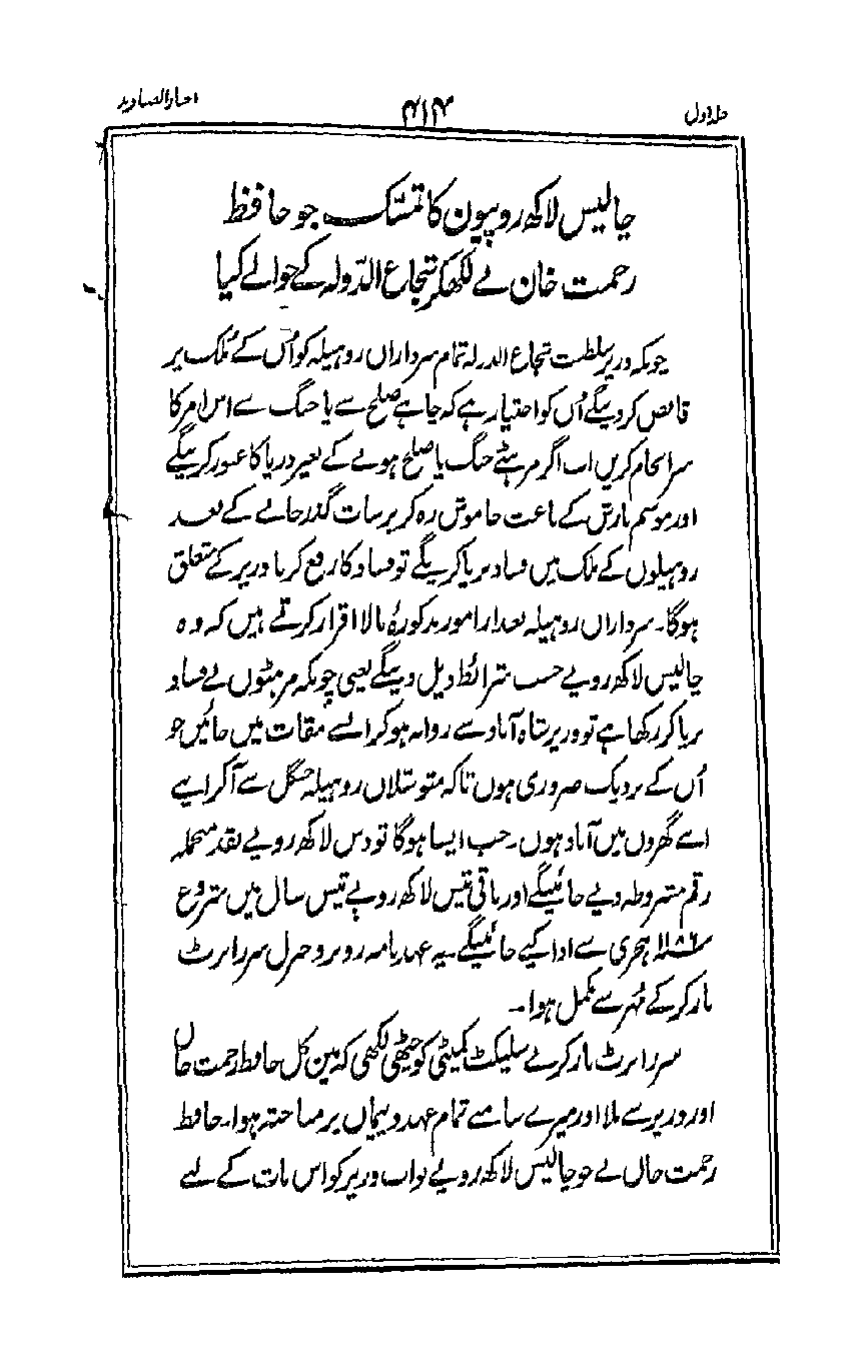 جلد اول ۴۱۴ اخبار الصنادید
چالیس لاکھ روپیوں کا تمسّک جو حافظ
رحمت خان نے لکھکر شجاع الدّولہ کے حوالے کیا
چونکہ وزیر سلطنت شجاع الدولہ تمام سرداران روہیلہ کو اُس کے مُلک پر
قابض کر دینگے اُن کو اختیار ہے کہ چاہے صلح سے یا جنگ سے اس امر کا
سرانجام کریں اب اگر مرہٹے جنگ یا صلح ہونے کے بغیر دریا کا عبور کرینگے
اور موسم بارش کے باعث خاموش رہ کر برسات گذر جانے کے بعد
روہیلوں کے ملک میں فساد برپا کرینگے تو فساد کا رفع کرنا وزیر کے متعلق
ہوگا۔ سرداران روہیلہ بعد از امور مذکورۂ بالا اقرار کرتے ہیں کہ وہ
چالیس لاکھ روپے حسب شرائط ذیل دینگے یعنی چونکہ مرہٹوں نے فساد
برپا کر رکھا ہے تو وزیر شاہ آباد سے روانہ ہو کر ایسے مقات میں جائیں جو
اُن کے نزدیک ضروری ہوں تاکہ متوسّلان روہیلہ جنگل سے آ کر اپنے
اپنے گھروں میں آباد ہوں۔ جب ایسا ہوگا تو دس لاکھ روپے نقد منجملہ
رقم مشروطہ دیے جائینگے اور باقی تیس لاکھ روپے تیس سال میں شروع
سنہ ۱۱۸۶ ہجری سے ادا کیے جائینگے۔ یہ عہدنامہ روبرو جنرل سر رابرٹ
بارکر کے مُہر سے مکمل ہوا۔
سر رابرٹ بارکر نے سلیکٹ کمیٹی کو چٹھی لکھی کہ میں کل حافظ رحمت خاں
اور وزیر سے ملا اور میرے سامنے تمام عہد و پیماں پر مباحثہ ہوا۔ حافظ
رحمت خاں نے جو چالیس لاکھ روپے نواب وزیر کو اس بات کے لیے